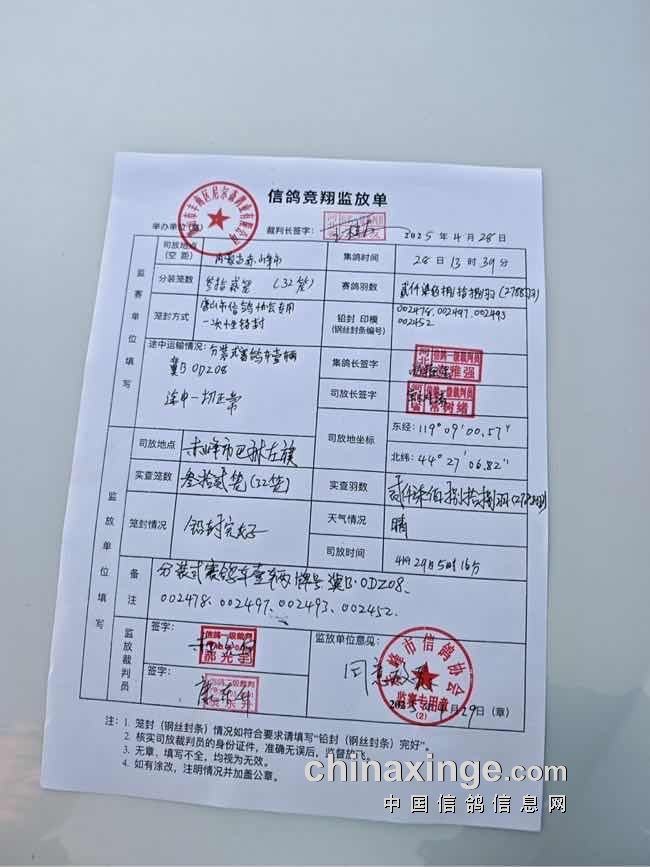 信鸽竞翔监放单
举办单位(章) 裁判长签字: 2025年4月28日
监赛单位填写
司放地点(空距) 内蒙古赤峰市 集鸽时间 28日13时39分
分装笼数 叁拾贰笼(32笼) 赛鸽羽数 贰仟柒佰捌拾捌羽(2788羽)
笼封方式 唐山市信鸽协会专用一次性铅封 铅封 印模(钢丝封条编号) 002478.002497.002493 002452
途中运输情况: 分装式赛鸽车壹辆
冀B·0DZ08
途中一切正常
集鸽长签字 信鸽一级裁判员
司放长签字 信鸽一级裁判员 常树绪
司放地坐标 东经: 119°09′00.57″
北纬: 44°27′06.82″
监放单位填写
司放地点 赤峰市巴林左旗
实查笼数 叁拾贰笼(32笼) 实查羽数 贰仟柒佰捌拾捌羽(2788羽)
笼封情况 铅封完好 天气情况 晴
司放时间 4月29日5时16分
备注 分装式赛鸽车壹辆牌号冀B·0DZ08.
002478.002497.002493.002452.
监放裁判员 签字: 信鸽一级裁判
签字:
监放单位意见: 同意放飞
赤峰市信鸽协会
监赛专用章
(2)
29日(章)
注: 1. 笼封(钢丝封条)情况如符合要求请填写“铅封(钢丝封条)完好”。
2. 核实司放裁判员的身份证件,准确无误后,监督放飞。
3. 无章、填写不全,均视为无效。
4. 如有涂改,注明情况并加盖公章。
chinaxinge.com
中国信鸽信息网